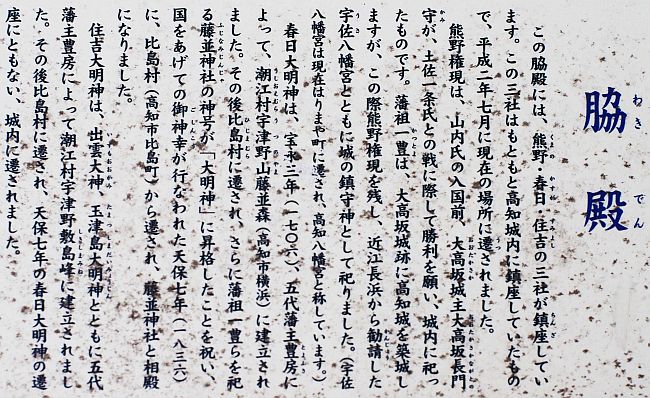 脇殿
わきでん
この脇殿には、熊野・春日・住吉の三社が鎮座してい
ます。この三社はもともと高知城内に鎮座していたもの
で、平成二年七月に現在の場所に遷されました。
熊野権現は、山内氏の入国前、大高坂城主大高坂長門
守が、土佐一条氏との戦に際して勝利を願い、城内に祀っ
たものです。藩祖一豊は、大高坂城跡に高知城を築城し
ますが、この際熊野権現を残し、近江長浜から勧請した
宇佐八幡宮とともに城の鎮守神として祀りました。(宇佐
八幡宮は現在はりまや町に遷され、高知八幡宮と称しています。)
春日大明神は、宝永三年(一七〇六)、五代藩主豊房に
よって、潮江村宇津野山藤並森(高知市横浜)に建立され
ました。その後比島村に遷され、さらに藩祖一豊らを祀
る藤並神社の神号が、「大明神」に昇格したことを祝い、
国をあげての御神幸が行なわれた天保七年(一八三六)
に、比島村(高知市比島町)から遷され、藤並神社と相殿
になりました。
住吉大明神は、出雲大神、玉津島大明神とともに五代
藩主豊房によって潮江村宇津野敷島峰に建立されまし
た。その後比島村に遷され、天保七年の春日大明神の遷
座にともない、城内に遷されました。